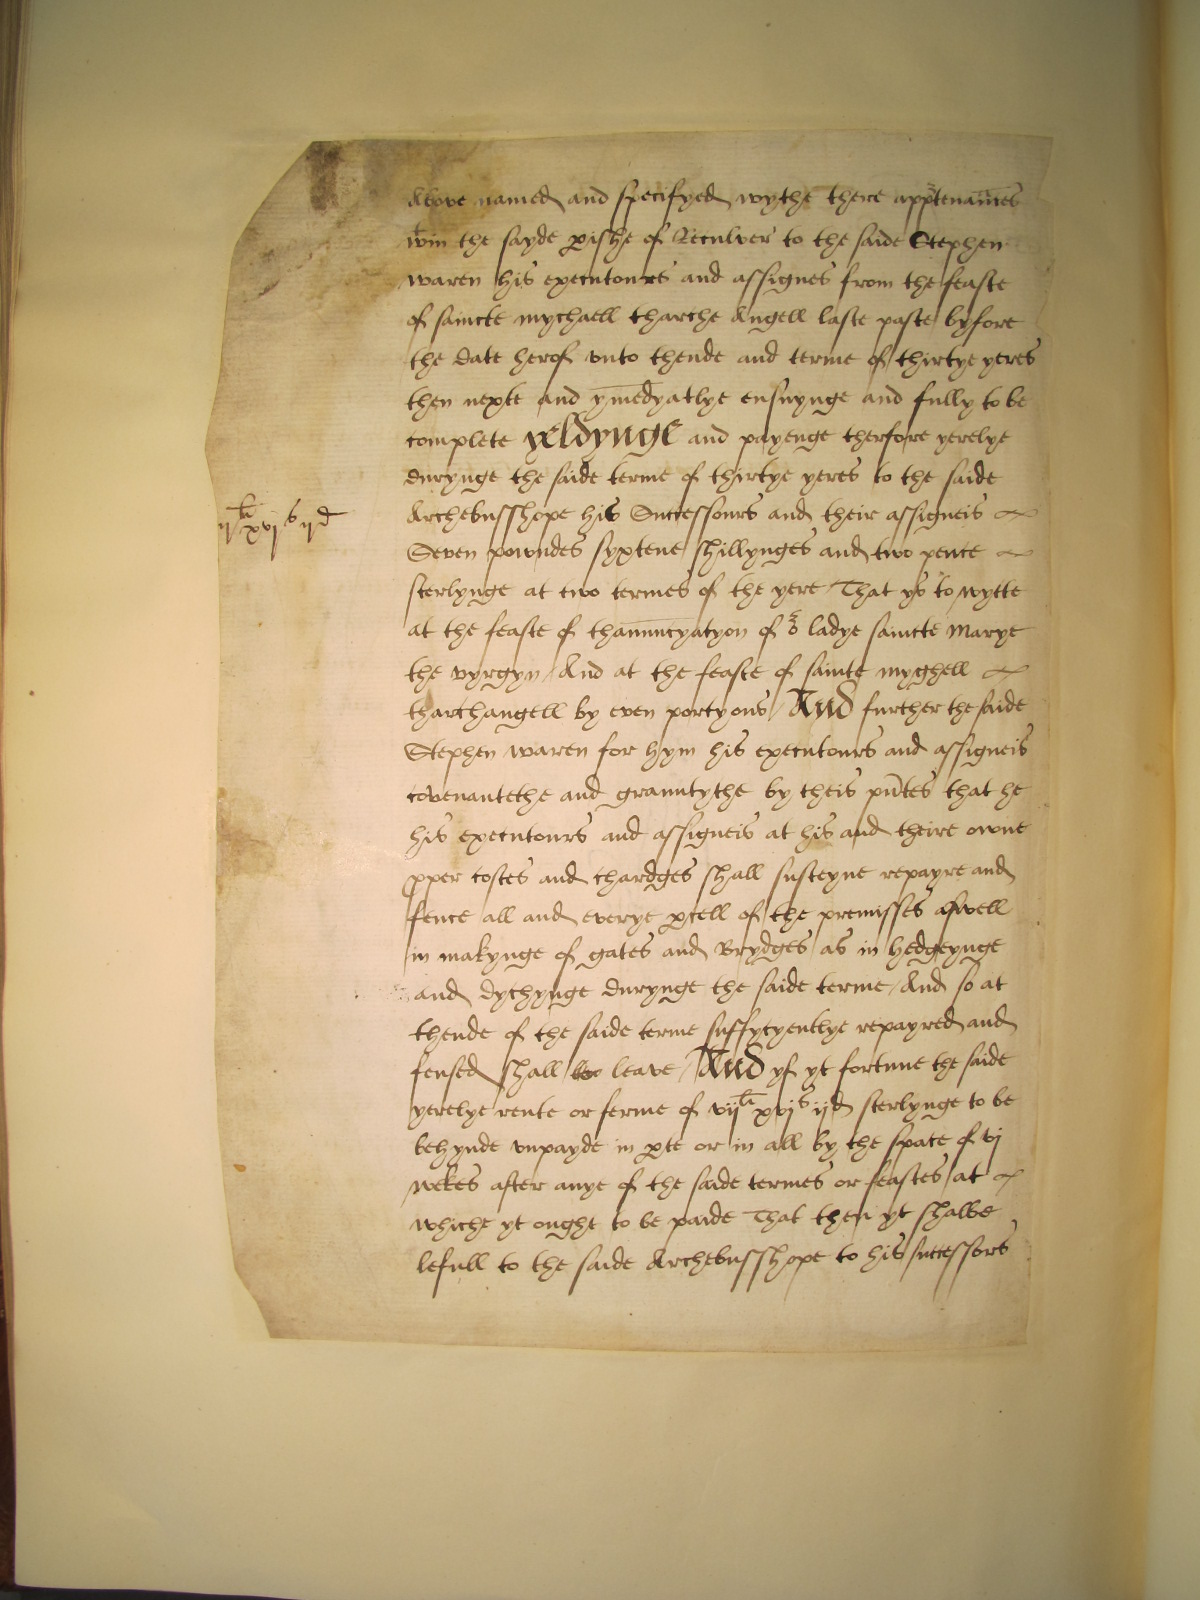 Above named and specifyed wythe there apptenances
wtin the sayde pishe of Reculver to the saide Stephen
waren his executours and assignes from the feaste
of saincte mychaell tharche Angell laste paste byfore
the date herof vnto thende and terme of thirtye yeres
then nexte and ymedyatlye ensuynge and fully to be
complete yeldynge and payenge therfore yerelye
durynge the saide terme of thirtye yeres to the saide
Archebusshope his Successours and their assigneis
ijli xvjs ijd
Seven powndes syxtene shillynges and two pence
sterlynge at two termes of the yere / That ys to wytte
at the feaste of thannuncyatyon of or ladye saincte Marye
the vyrgyn / And at the feaste of sainte myghell
tharchangell by even portyons / And further the saide
Stephen waren for hym his executours and assigneis
covenantethe and grauntythe by theis pntes that he
his executours and assigneis at his and theire owne
pper costes and chardges shall susteyne repayre and
fence all and everye pcell of the premisses aswell
in makynge of gates and Brydges as in hedgeynge
and dychynge durynge the saide terme / And so at
thende of the saide terme suffycyentlye repayred and
fensed shall leave / And yf yt fortune the saide
yerelye rente or ferme of vijli xvjs ijd sterlynge to be
behynde vnpayde in pte or in all by the space of vj
wekes after anye of the saide termes or feastes at
whiche yt ought to be paide That then yt shalbe
lefull to the saide Archebusshope to his successors